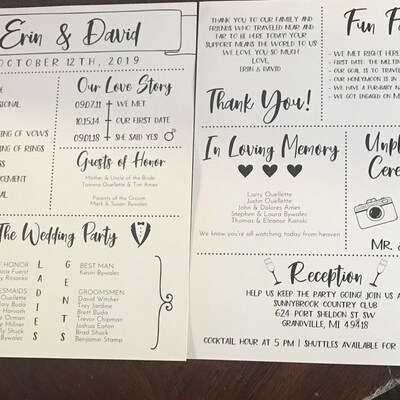 Erin & David
OCTOBER 12TH, 2019
OF VOWS
OF RINGS
Our Love Story
09.07.11 WE MET
10.15.14 OUR FIRST DATE
09.01.18 SHE SAID YES
Guests of Honor
Mother & Uncle of the Bride
Tammra Ouellette & Tim Ames
Parents of the Groom
Mark & Susan Bywalec
The Wedding Party
LADIES
GENTS
OF HONOR
BEST MAN
Kevin Bywalec
GROOMSMEN
David Witcher
Trey Jardow
Brett Buda
Trevor Chipmon
Joshua Eaton
Brad Stuck
Benjamin Stamp
THANK YOU TO OUR FAMILY AND
FRIENDS WHO TRAVELED NEAR AND
FAR TO BE HERE TODAY! YOUR
SUPPORT MEANS THE WORLD TO US
WE LOVE YOU SO MUCH
LOVE,
ERIN & DAVID
Thank You!
Fun
- WE MET RIGHT HERE
- FIRST DATE: THE
- OUR GOAL IS TO
- OUR HONEYMOON IS IN
- WE HAVE A FUR-BABY
- WE GOT ENGAGED ON
In Loving Memory
Larry Ouellette
Justin Ouellette
John & Dolores Ames
Stephen & Laura Bywalec
Thomas & Eleanor Kienski
We know you're all watching today from heaven
MR. &
Reception
HELP US KEEP THE PARTY GOING! JOIN US
SUNNYBROOK COUNTRY CLUB
624 PORT SHELDON ST SW
GRANDVILLE, MI 49418
COCKTAIL HOUR AT 5 PM | SHUTTLES AVAILABLE FOR